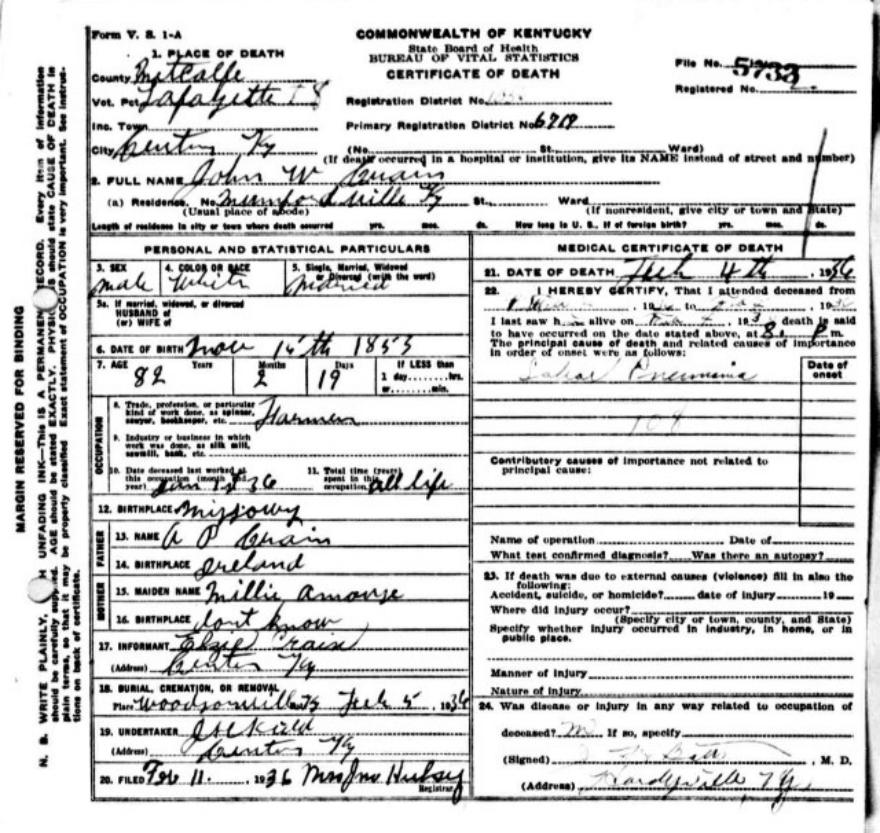 Form V. S. 1-A
COMMONWEALTH OF KENTUCKY
State Board of Health
BUREAU OF VITAL STATISTICS
CERTIFICATE OF DEATH
File No. 5733
Registered No. 2
1. PLACE OF DEATH
County Metcalfe
Vot. Pct. Lafayette
Registration District No.
Inc. Town
Primary Registration District No.
City Center Ky
(No. St. Ward)
(If death occurred in a hospital or institution, give its NAME instead of street and number)
2. FULL NAME John W
(a) Residence. No. Ky St., Ward
(Usual place of abode) (If nonresident, give city or town and State)
Length of residence in city or town where death occurred yrs. mos. ds. How long in U. S., if of foreign birth? yrs. mos. ds.
PERSONAL AND STATISTICAL PARTICULARS
3. SEX male
4. COLOR OR RACE White
5. Single, Married, Widowed or Divorced (write the word)
5a. If married, widowed, or divorced
HUSBAND of
(or) WIFE of
6. DATE OF BIRTH Nov 15th 1853
7. AGE 82 Years 2 Months 19 Days If LESS than
1 day, hrs.
or min.
OCCUPATION
8. Trade, profession, or particular
kind of work done, as spinner,
sawyer, bookkeeper, etc. Farmer
9. Industry or business in which
work was done, as silk mill,
sawmill, bank, etc.
10. Date deceased last worked at
this occupation (month and
year) Jan 36
11. Total time (years)
spent in this
occupation all life
12. BIRTHPLACE Missoury
FATHER
13. NAME A P
14. BIRTHPLACE Ireland
MOTHER
15. MAIDEN NAME Millie
16. BIRTHPLACE dont know
17. INFORMANT
(Address) Center Ky
18. BURIAL, CREMATION, OR REMOVAL
Place Woodsonville Ky Feb 5, 1936
19. UNDERTAKER
(Address) Center Ky
20. FILED Feb 11. 1936 Mrs Jno
Registrar
MEDICAL CERTIFICATE OF DEATH
21. DATE OF DEATH Feb 4th, 1936
22. I HEREBY CERTIFY, That I attended deceased from
19 to 19
I last saw h alive on 193 death is said
to have occurred on the date stated above, at 8 P m.
The principal cause of death and related causes of importance
in order of onset were as follows:
Date of
onset
Lobar Pneumonia
108
Contributory causes of importance not related to
principal cause:
Name of operation Date of
What test confirmed diagnosis? Was there an autopsy?
23. If death was due to external causes (violence) fill in also the
following:
Accident, suicide, or homicide? date of injury 19
Where did injury occur?
(Specify city or town, county, and State)
Specify whether injury occurred in industry, in home, or in
public place.
Manner of injury
Nature of injury
24. Was disease or injury in any way related to occupation of
deceased? If so, specify
(Signed) , M. D.
(Address) Hardyville Ky
MARGIN RESERVED FOR BINDING
N. B. WRITE PLAINLY, UNFADING INK—This is A PERMANENT RECORD. Every item of information
should be carefully supplied. AGE should be stated EXACTLY. should state CAUSE OF DEATH in
plain terms, so that it may be properly classified. Exact statement of OCCUPATION is very important. See instruc-
tions on back of certificate.